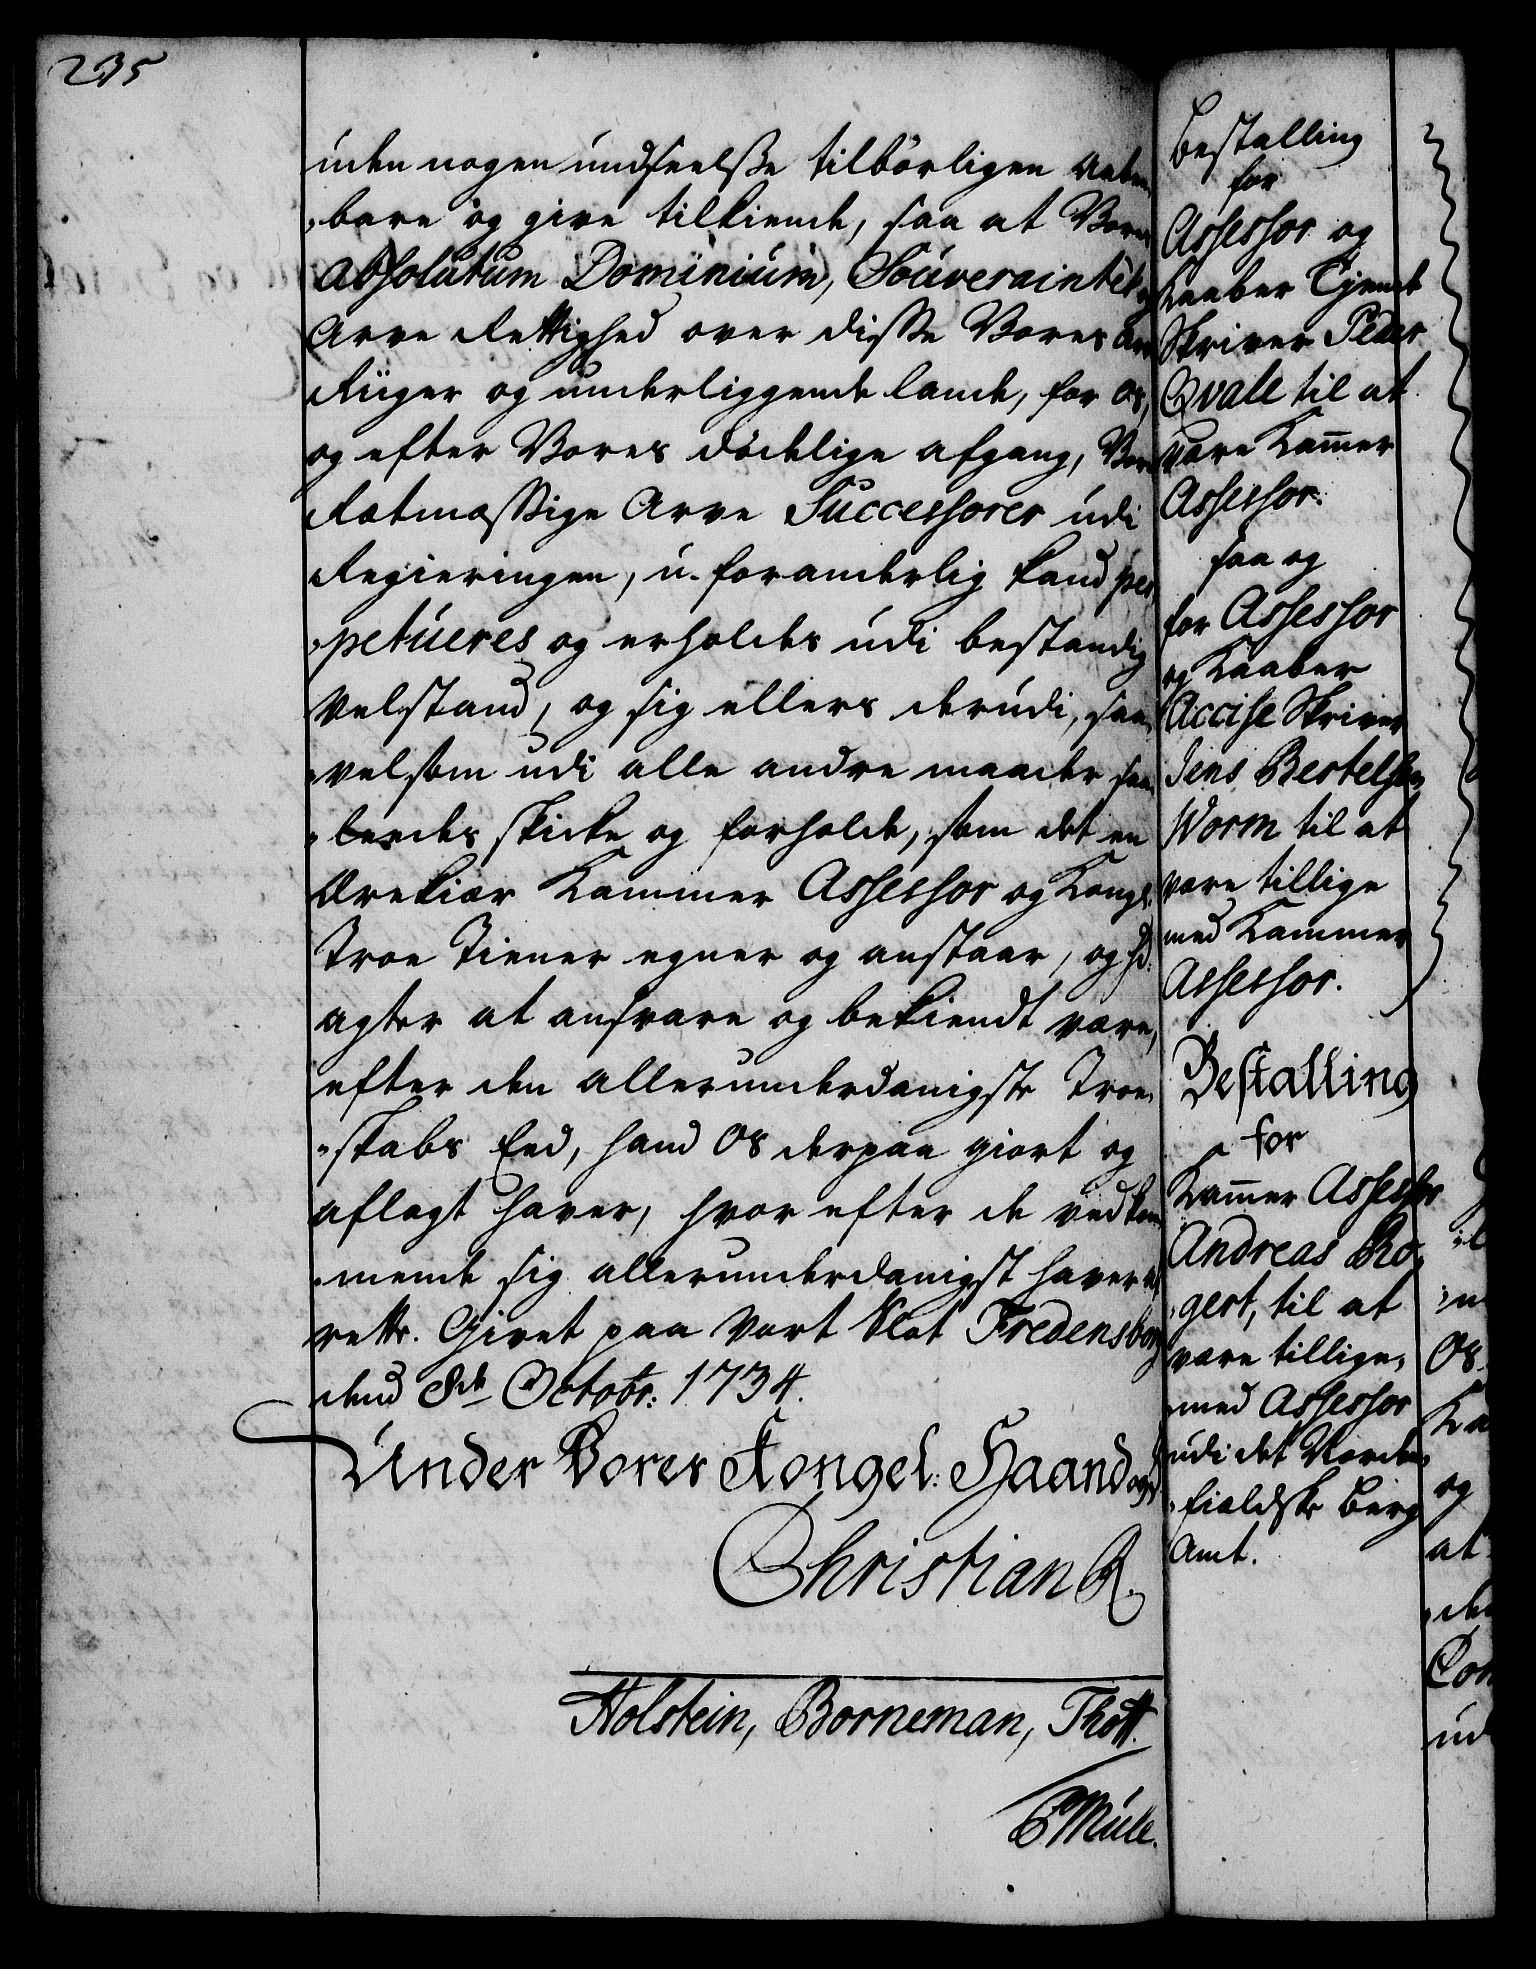 235
uden nogen undseelsse tilbörligen aaben-
-bare og give tilkiende, saa at Vores
Absolutum Dominium, Souverainitet og
Arve Rettighed over disse Vores Arve
Riiger og underliggende lande, for os,
og efter Vores dödelige afgang, Vore
Retmæssige Arve Successorer udi
Regieringen, u-foranderlig kand per-
-petueres og erholdes udi bestandig
Velstand, og sig ellers derudi, saa-
-velsom udi alle andre maader saa-
-leedes skicke og forholde, som det en
Ærekiær Kammer Assessor og Kongl.
Troe Tiener egner og anstaar, og hand
agter at ansvare og bekiendt være,
efter den allerunderdanigste Troe-
-skabs Eed, hand Os derpaa giort og
aflagt haver, hvor efter de vedkom-
-mende sig allerunderdanigst haver at
rette. Givet paa Vort Slot Fredensborg
dend 8de Octobr: 1734.
Under Vores Kongel: Haand og
Christian R.
Holstein, Borneman, Thott.
E Mule.
Bestalling
for
Assessor og
Kaaber Tiende
Skriver Peder
Qvale til at
være Kam̄er
Assessor.
saa og
for Assessor
og Kaaber
Accise Skriver
Jens Bertelsen
Worm til at
være tillige
med Kammer
Assessor.
Bestalling
for
Kam̄er Assessor
Andreas Ro-
-gert, til at
være tillige
med Assessor
udi det Norden-
-fieldske Berg
Amt.
Os
Ka
og
at
-de
Con
ud